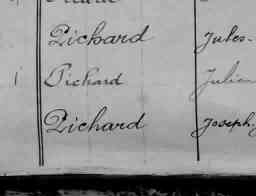 Pichard Jules
1 Pichard Julien
Pichard Joseph